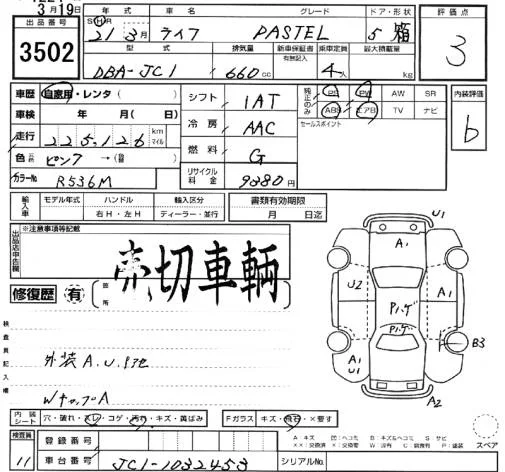 3月19日
出品番号
3502
年式 車名 グレード ドア・形状
SHR 21年 3月 ライフ PASTEL 5 箱
型式 排気量 新車保証書 有無記入 乗車定員 最大積載量
DBA-JC1 660cc 4人 kg
評価点
3
車歴 自家用・レンタ( )
車検 年 月( 日)
走行 225,126 km マイル
色 元色 ピンク→(替色 )
カラーNo R536M
シフト IAT
冷房 AAC
燃料 G
リサイクル料金 9880円
純正のみ PS PW AW SR
ABS エアB TV ナビ
セールスポイント
内装評価
b
輸入車 モデル年式 ハンドル 輸入区分 書類有効期限
右H・左H ディーラー・並行 月 日迄
出品店申告欄
※注意事項等記載
売切車輌
修復歴 有 箇所
検査員記入欄
外装A.U.キズ凹
WキックアA
U1
A1
U2 Pハゲ A1
Pハゲ
B3
A1
U1
A2
内装シート 穴・破れ・スレ・コゲ・汚れ・キズ・黄ばみ Fガラス キズ・飛石・×要す
検査員 11
登録番号
車台番号 JC1-1032453 シリアルNo.
A キズ 凹:ヘコミ B キズ&ヘコミ S サビ
××:交換済 ×:交換要 W:波有 C:腐食有 P:塗装
スペア